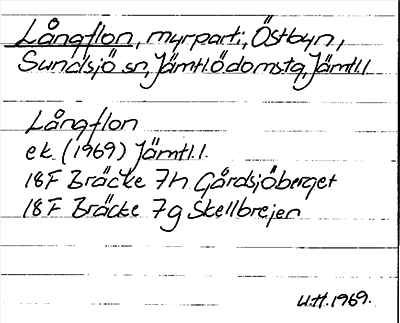 Långflon, myrparti, Östbyn,
Sundsjö sn, Jämtl.ö.domstg, Jämtl.l
Långflon
ek. (1969) Jämtl.l.
18F Bräcke 7h Gårdsjöberget
18F Bräcke 7g Skellbrejen
U.H. 1969.